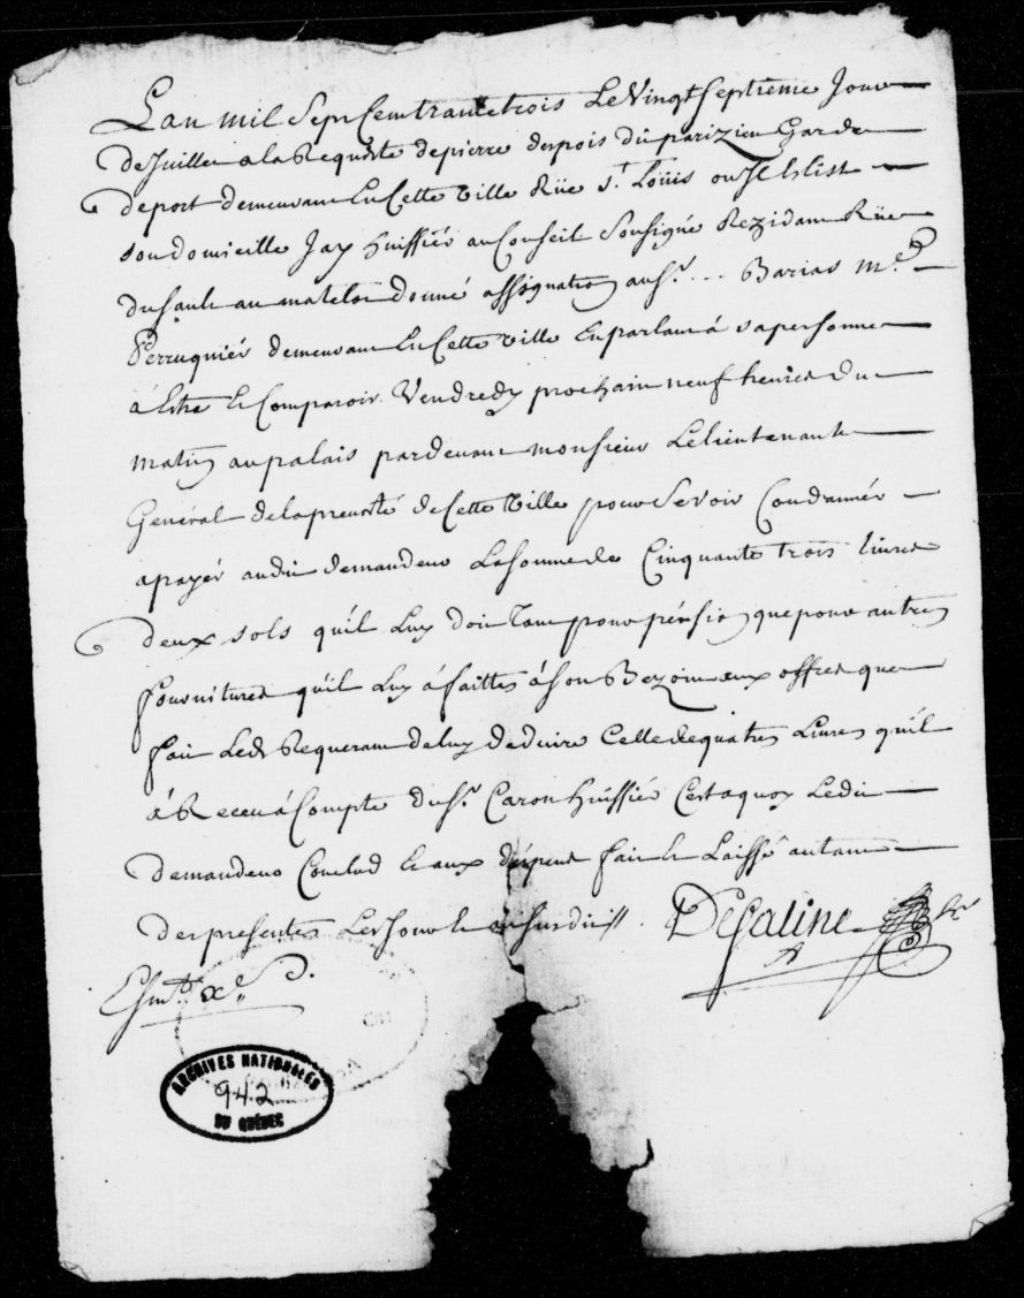 Lan mil Sept Cent trante trois Le Vingt Septieme Jour
de Juillet a la Requeste de pierre despois dit parizien Garde
de port demeurant En Cette Ville Rüe St. Loüis ou Il Eslist
son domicille Jay huissiér au Conseil Sousigné Rezidant Rüe
du sault au matelot donné assignation au Sr. ... Barias me.
Perruquiér demeurant En Cette Ville En parlant á sa personne
á Estre Et Comparoir Vendredy prochain neuf heures du
matin au palais pardevant monsieur Le lieutenant
Genéral de la prevosté de Cette Ville pour Se voir Condamnér
a payér audit demandeur La somme de Cinquante trois livres
deux sols qu'il Luy doit Tant pour pénsion que pour autres
fournitures qu'il Luy á faittes á son Bezoin aux offres que
fait Led. Requerant de luy deduire Celle de quatre Livres qu'il
á Receu á Compte du Sr. Caron huissiér Cest a quoy Ledit
demandeur Conclud Et aux dépens fait Et Laissé autant
des presentes Les Jour Et an susdit
DeGatine hr
ARCHIVES NATIONALES
942
DU QUÉBEC